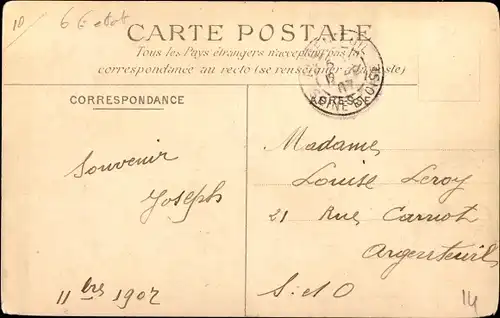 10
CARTE POSTALE
Tous les Pays étrangers n'acceptent pas la
correspondance au recto (se renseigner à la Poste)
SEINE-&-OISE
CORRESPONDANCE
Souvenir
Joseph
11 bre 1907
Madame
Louise Leroy
21 Rue Carnot
Argenteuil
S. et O
14